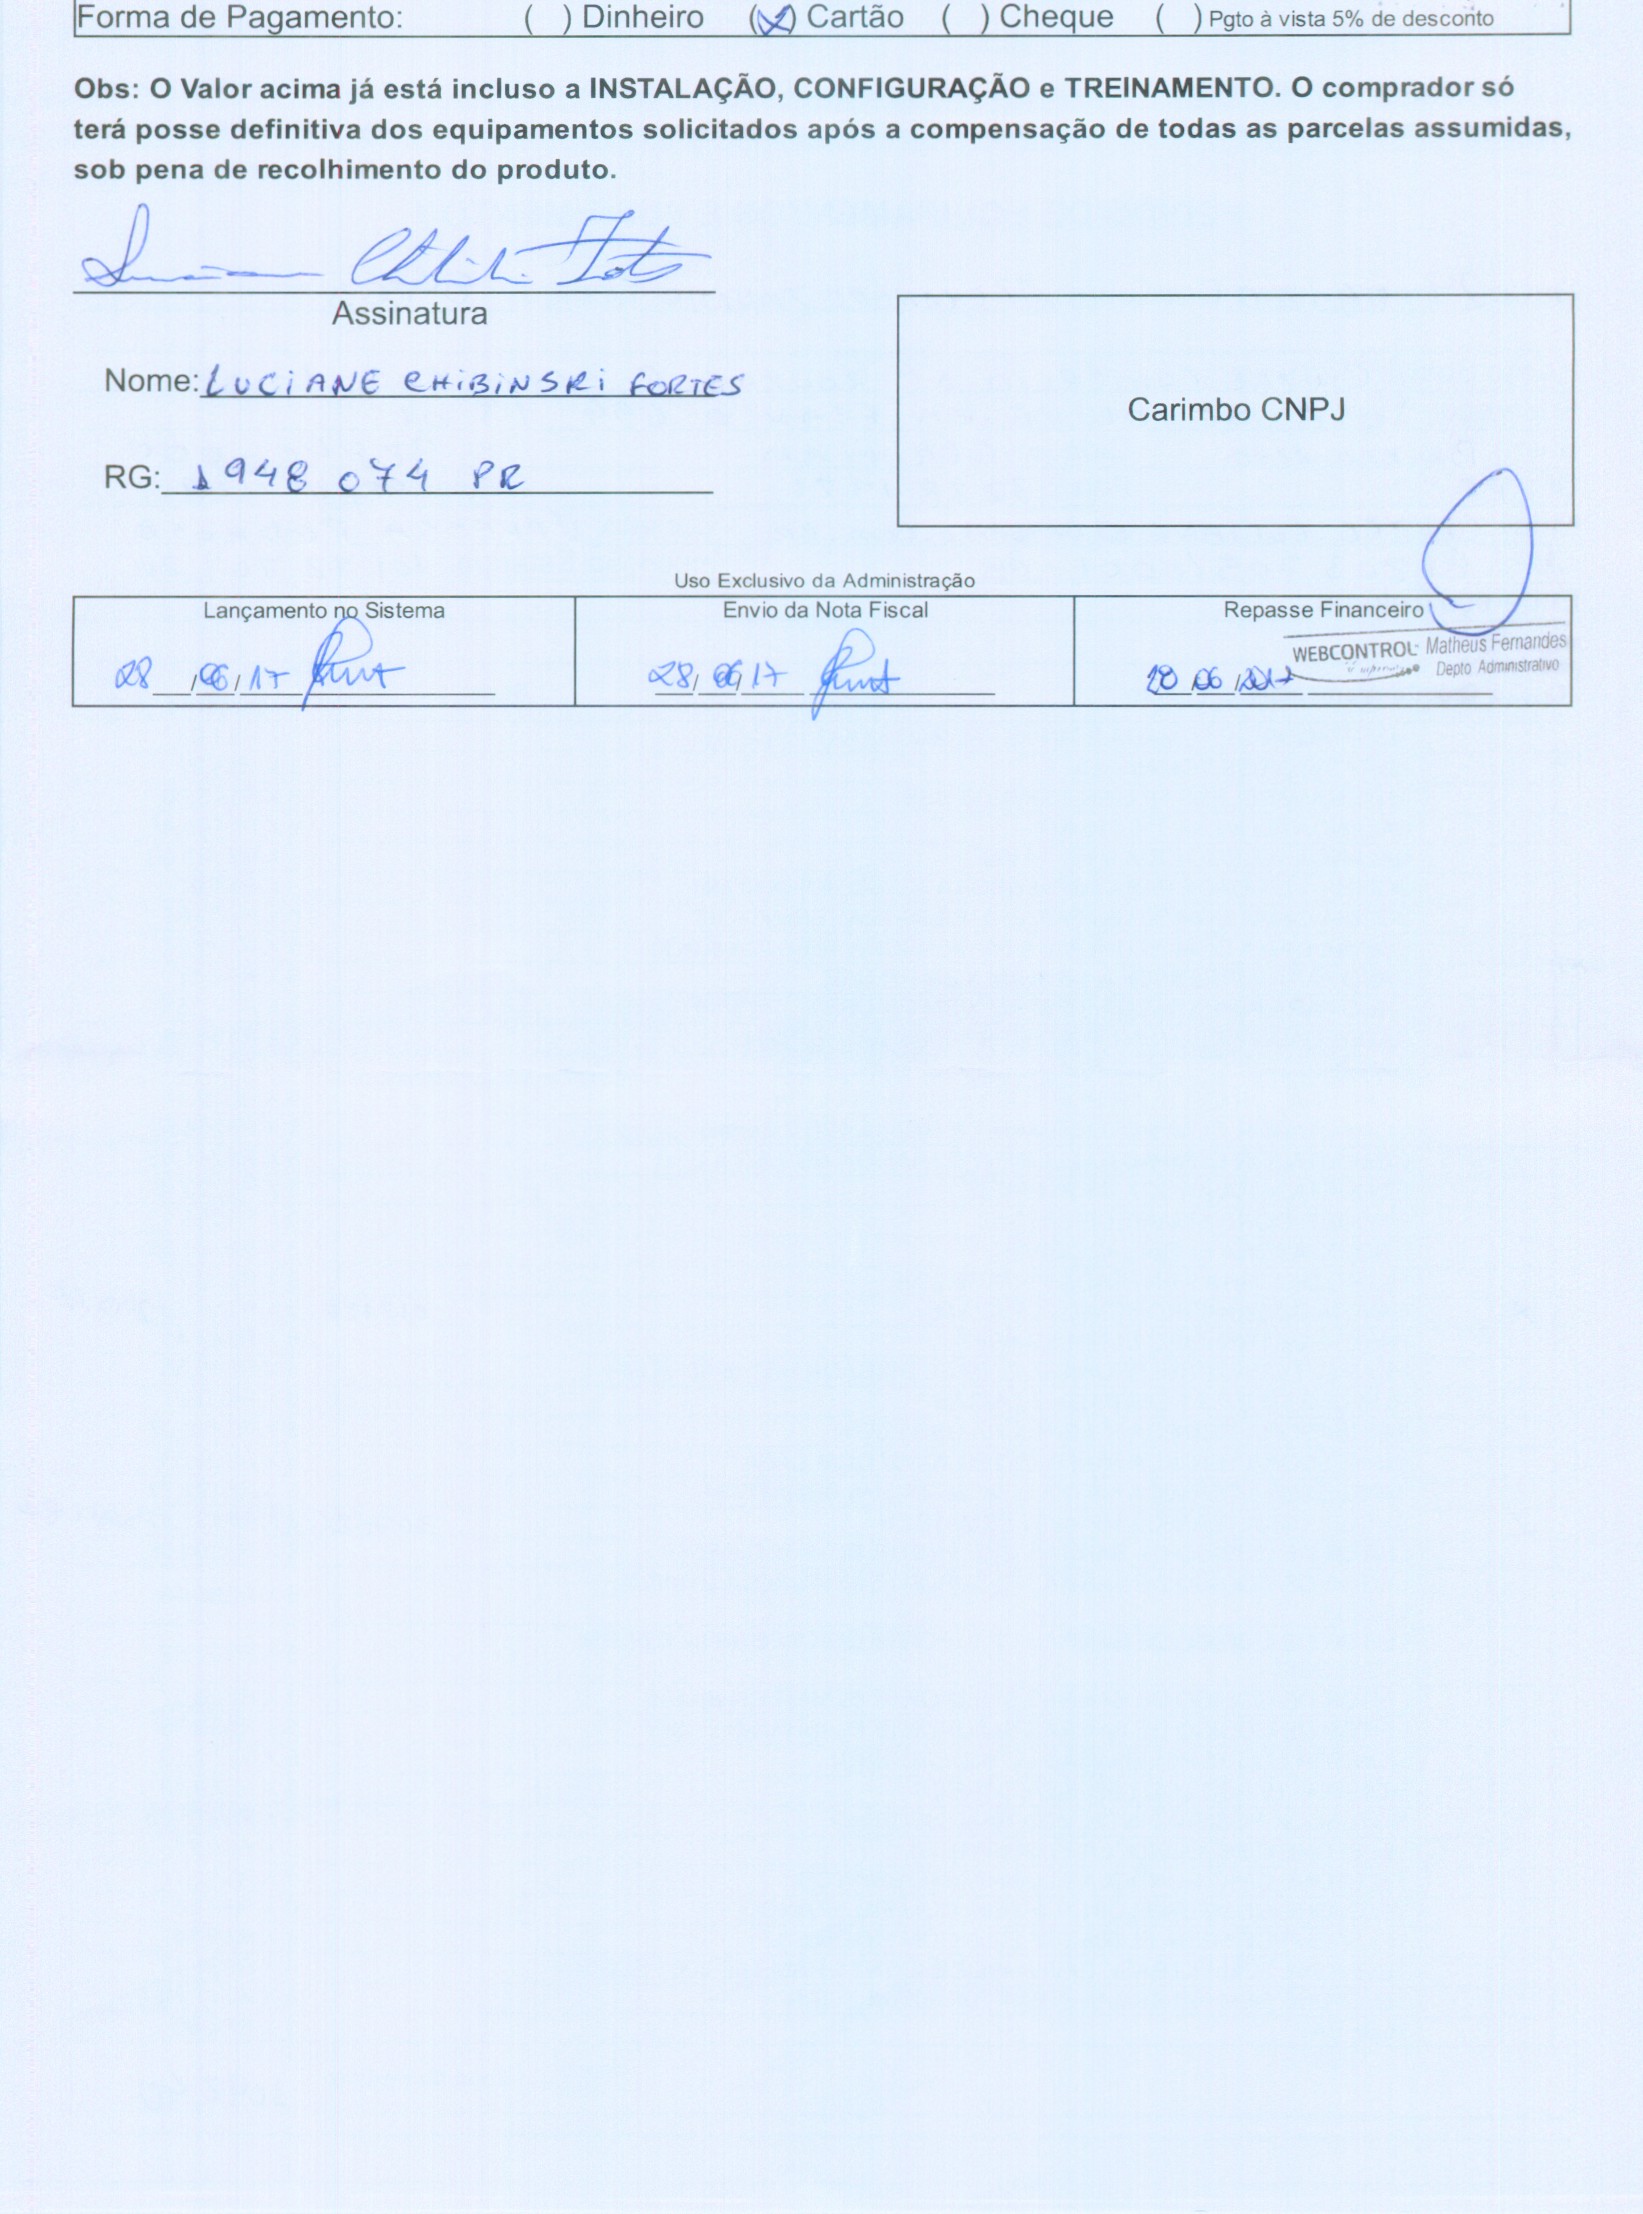 Forma de Pagamento: ( ) Dinheiro (X) Cartão ( ) Cheque ( ) Pgto à vista 5% de desconto
Obs: O Valor acima já está incluso a INSTALAÇÃO, CONFIGURAÇÃO e TREINAMENTO. O comprador só
terá posse definitiva dos equipamentos solicitados após a compensação de todas as parcelas assumidas,
sob pena de recolhimento do produto.
Assinatura
Nome: LUCIANE CHIBINSKI FORTES
RG: 1948 074 PR
Carimbo CNPJ
Uso Exclusivo da Administração
Lançamento no Sistema Envio da Nota Fiscal Repasse Financeiro
28/06/17 28/06/17 28/06/2017
WEBCONTROL Matheus Fernandes
Depto Administrativo